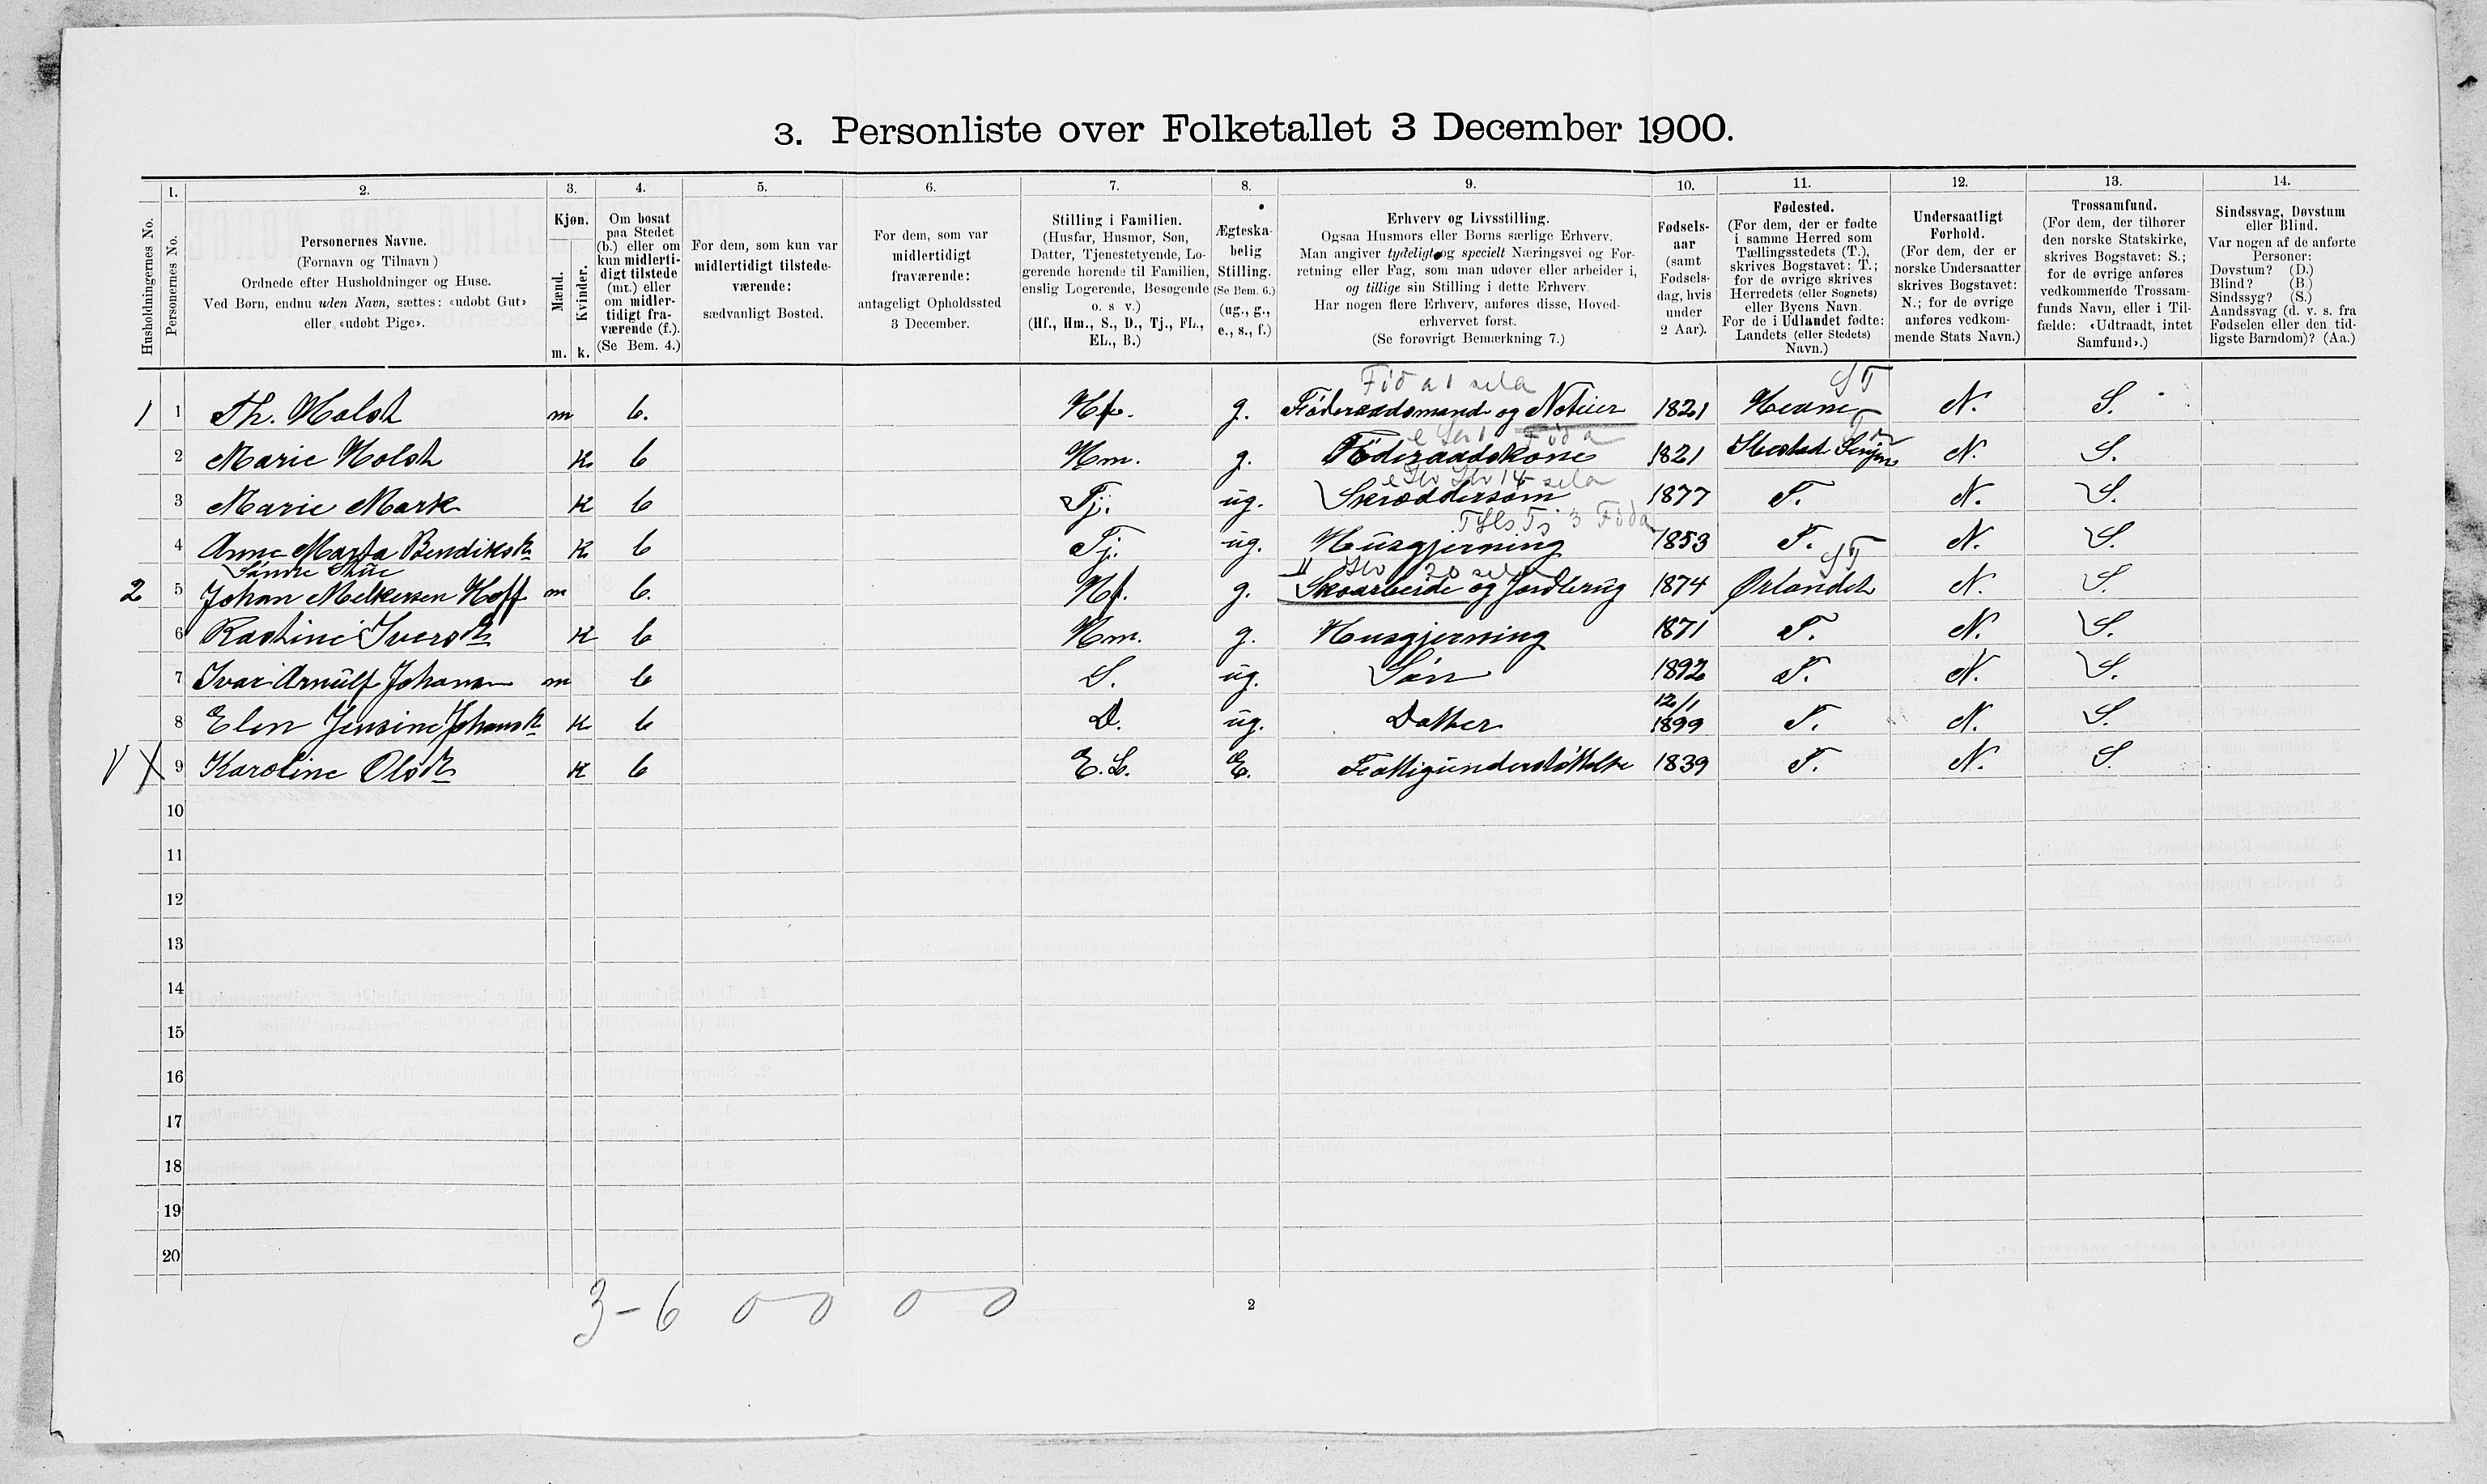 3. Personliste over Folketallet 3 December 1900.
1. 2. 3. 4. 5. 6. 7. 8. 9. 10. 11. 12. 13. 14.
Husholdningernes No.
Personernes No.
Personernes Navne.
(Fornavn og Tilnavn )
Ordnede efter Husholdninger og Huse.
Ved Børn, endnu uden Navn, sættes: «udøbt Gut»
eller «udøbt Pige».
Kjøn.
Mænd.
Kvinder.
m. k.
Om bosat
paa Stedet
(b.) eller om
kun midlerti-
digt tilstede
(mt.) eller
om midler-
tidigt fra-
værende (f.).
(Se Bem. 4.)
For dem, som kun var
midlertidigt tilstede-
værende:
sædvanligt Bosted.
For dem, som var
midlertidigt
fraværende:
antageligt Opholdssted
3 December.
Stilling i Familien.
(Husfar, Husmor, Søn,
Datter, Tjenestetyende, Lo-
gerende hørende til Familien,
enslig Logerende, Besøgende
o. s v.)
(Hf., Hm., S., D., Tj., FL.,
EL., B.)
Ægteska-
belig
Stilling.
(Se Bem. 6.)
(ug., g.,
e., s., f.)
Erhverv og Livsstilling.
Ogsaa Husmors eller Børns særlige Erhverv.
Man angiver tydeligt og specielt Næringsvei og For-
retning eller Fag, som man udøver eller arbeider i,
og tillige sin Stilling i dette Erhverv
Har nogen flere Erhverv, anføres disse, Hoved-
erhvervet først.
(Se forøvrigt Bemærkning 7.)
Fødsels-
aar
(samt
Fødsels-
dag, hvis
under
2 Aar).
Fødested.
(For dem, der er fødte
i samme Herred som
Tællingsstedets (T.),
skrives Bogstavet: T.;
for de øvrige skrives
Herredets (eller Sognets)
eller Byens Navn.
For de i Udlandet fødte:
Landets (eller Stedets)
Navn.)
Undersaatligt
Forhold.
(For dem, der er
norske Undersaatter
skrives Bogstavet:
N.; for de øvrige
anføres vedkom-
mende Stats Navn.)
Trossamfund.
(For dem, der tilhører
den norske Statskirke,
skrives Bogstavet: S.;
for de øvrige anføres
vedkommende Trossam-
funds Navn, eller i Til-
fælde: «Udtraadt, intet
Samfund».)
Sindssvag, Døvstum
eller Blind.
Var nogen af de anførte
Personer:
Døvstum? (D.)
Blind? (B.)
Sindssyg? (S.)
Aandssvag (d. v. s. fra
Fødselen eller den tid-
ligste Barndom)? (Aa.)
Föd a 1 sela ST
1 1 Th. Holst m b. Hf. g. Föderaadsmand og Notier 1821 Hevne N. S.
Föda
2 Marie Holst k b Hm. g. Föderaadskone 1821 N. S.
14 sela
3 Marie Mark k b Tj. ug. Skræddersøm 1877 T. N. S.
Tj 3 Föda
4 Anne Marta Bendiksdt k b Tj. ug. Husgjerning 1853 T. N. S.
Söndre ST
2 5 Johan Melkersen Hoff m b. Hf. g. Skoarbeide og Jordbrug 1874 Ørlandet N. S.
6 Rastine Iversdt k b Hm. g. Husgjerning 1871 T. N. S.
7 Ivar Arnulf Johansen m b S. ug. Søn 1892 T. N. S.
12/1
8 Elen Jensine Johansdt k b D. ug. Datter 1899 T. N. S.
V X 9 Karoline Olsdt k b E.L. E. Fattigunderstøttelse 1839 T. N. S.
10
11
12
13
14
15
16
17
18
19
20
3-6 0 0 0 0
2